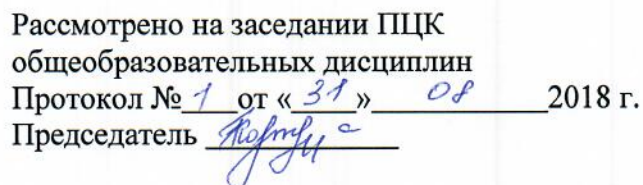 Рассмотрено на заседании ПЦК
общеобразовательных дисциплин
Протокол № 1 от « 31 » 08 2018 г.
Председатель